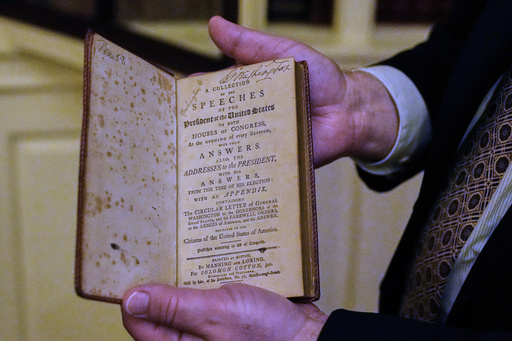 G. Washington
A COLLECTION
OF THE
SPEECHES
OF THE
President of the United States
TO BOTH
HOUSES OF CONGRESS,
At the OPENING of every SESSION,
WITH THEIR
ANSWERS.
ALSO, THE
ADDRESSES to the PRESIDENT,
WITH HIS
ANSWERS,
FROM THE TIME OF HIS ELECTION:
WITH AN APPENDIX,
CONTAINING
The CIRCULAR LETTER of GENERAL
WASHINGTON to the GOVERNORS of the
several STATES, and his FAREWELL ORDERS,
to the ARMIES of AMERICA, and the ANSWER.
DEDICATED TO THE
Citizens of the United States of America.
Published according to Act of Congress.
PRINTED AT BOSTON,
By MANNING and LORING,
For SOLOMON COTTON, jun.